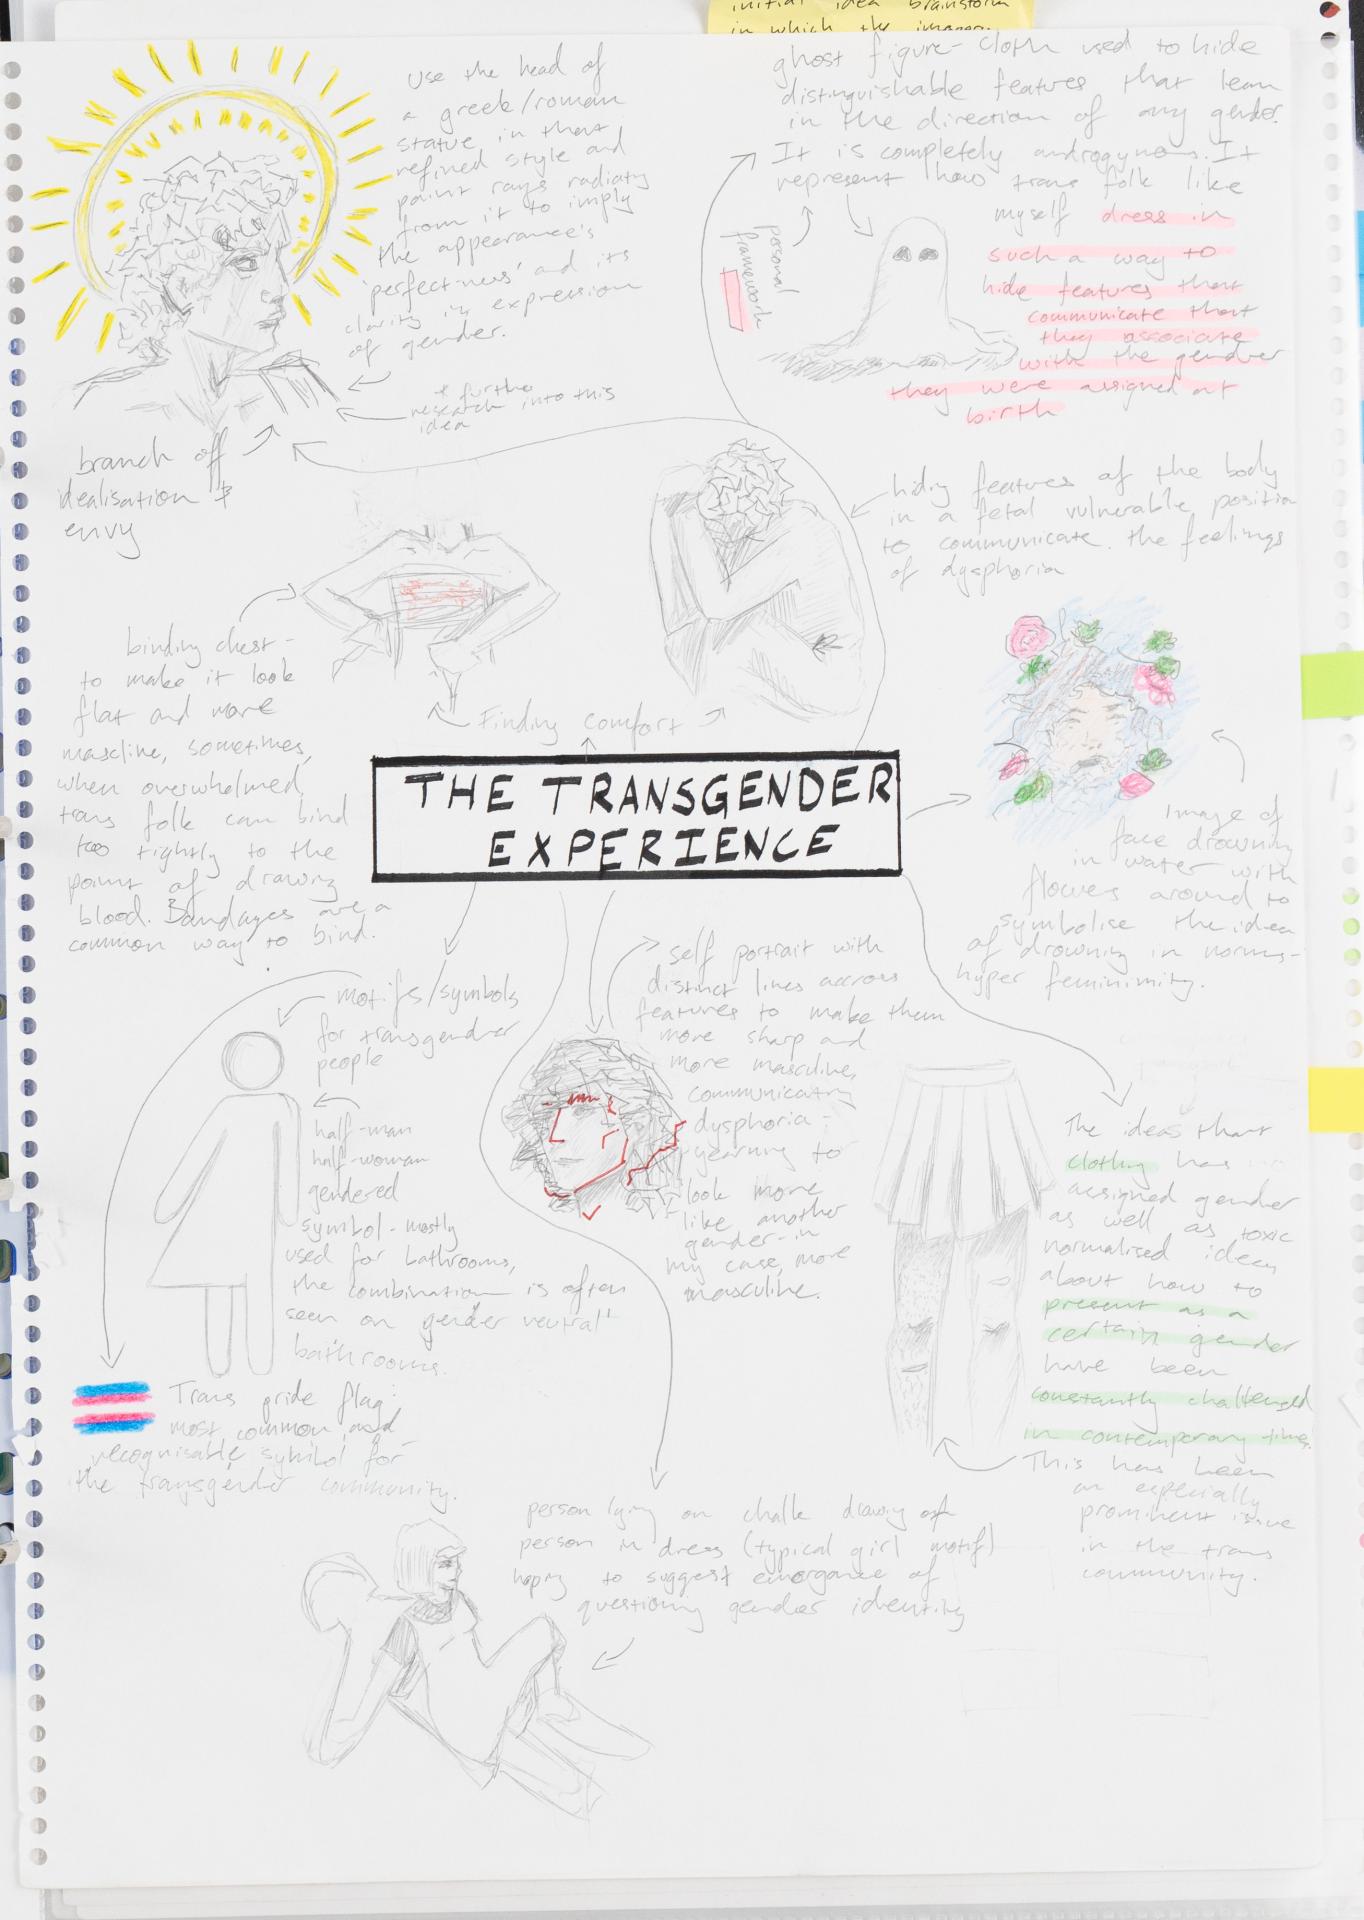 initial idea brainstorm
in which the imagery
use the head of
a greek/roman
statue in that
refined style and
paint rays radiaty
from it to imply
the appearance's
'perfectness' and its
clarity in expression
of gender.
* further
research into this
idea
branch off
idealisation &
envy
ghost figure - cloth used to hide
distinguishable features that lean
in the direction of any gender.
It is completely androgynous. It
represent how trans folk like
myself dress in
such a way to
hide features that
communicate that
they associate
with the gender
they were assigned at
birth
personal
framework
hiding features of the body
in a fetal vulnerable position
to communicate the feelings
of dysphoria
binding chest -
to make it look
flat and more
mascline, sometimes,
when overwhelmed,
trans folk can bind
too tightly to the
point of drawing
blood. Bandages are a
common way to bind.
Finding comfort
THE TRANSGENDER
EXPERIENCE
image of
face drowning
in water with
flowers around to
symbolise the idea
of drowning in norms -
hyper feminimity.
motifs/symbols
for transgender
people
half-man
half-woman
gendered
symbol - mostly
used for bathrooms,
the combination is often
seen on gender neutral
bathrooms.
Trans pride flag:
most common and
recognisable symbol for
the transgender community.
self portrait with
distinct lines accross
features to make them
more sharp and
more masculine,
communicating
dysphoria -
yearning to
look more
like another
gender - in
my case, more
masculine.
The ideas that
clothing has
assigned gender
as well as toxic
normalised ideas
about how to
present as a
certain gender
have been
constantly challenged
in contemporary times.
This has been
an especially
prominent issue
in the trans
community.
person lying on chalk drawing of
person in dress (typical girl motif)
hoping to suggest emergance of
questioning gender identity